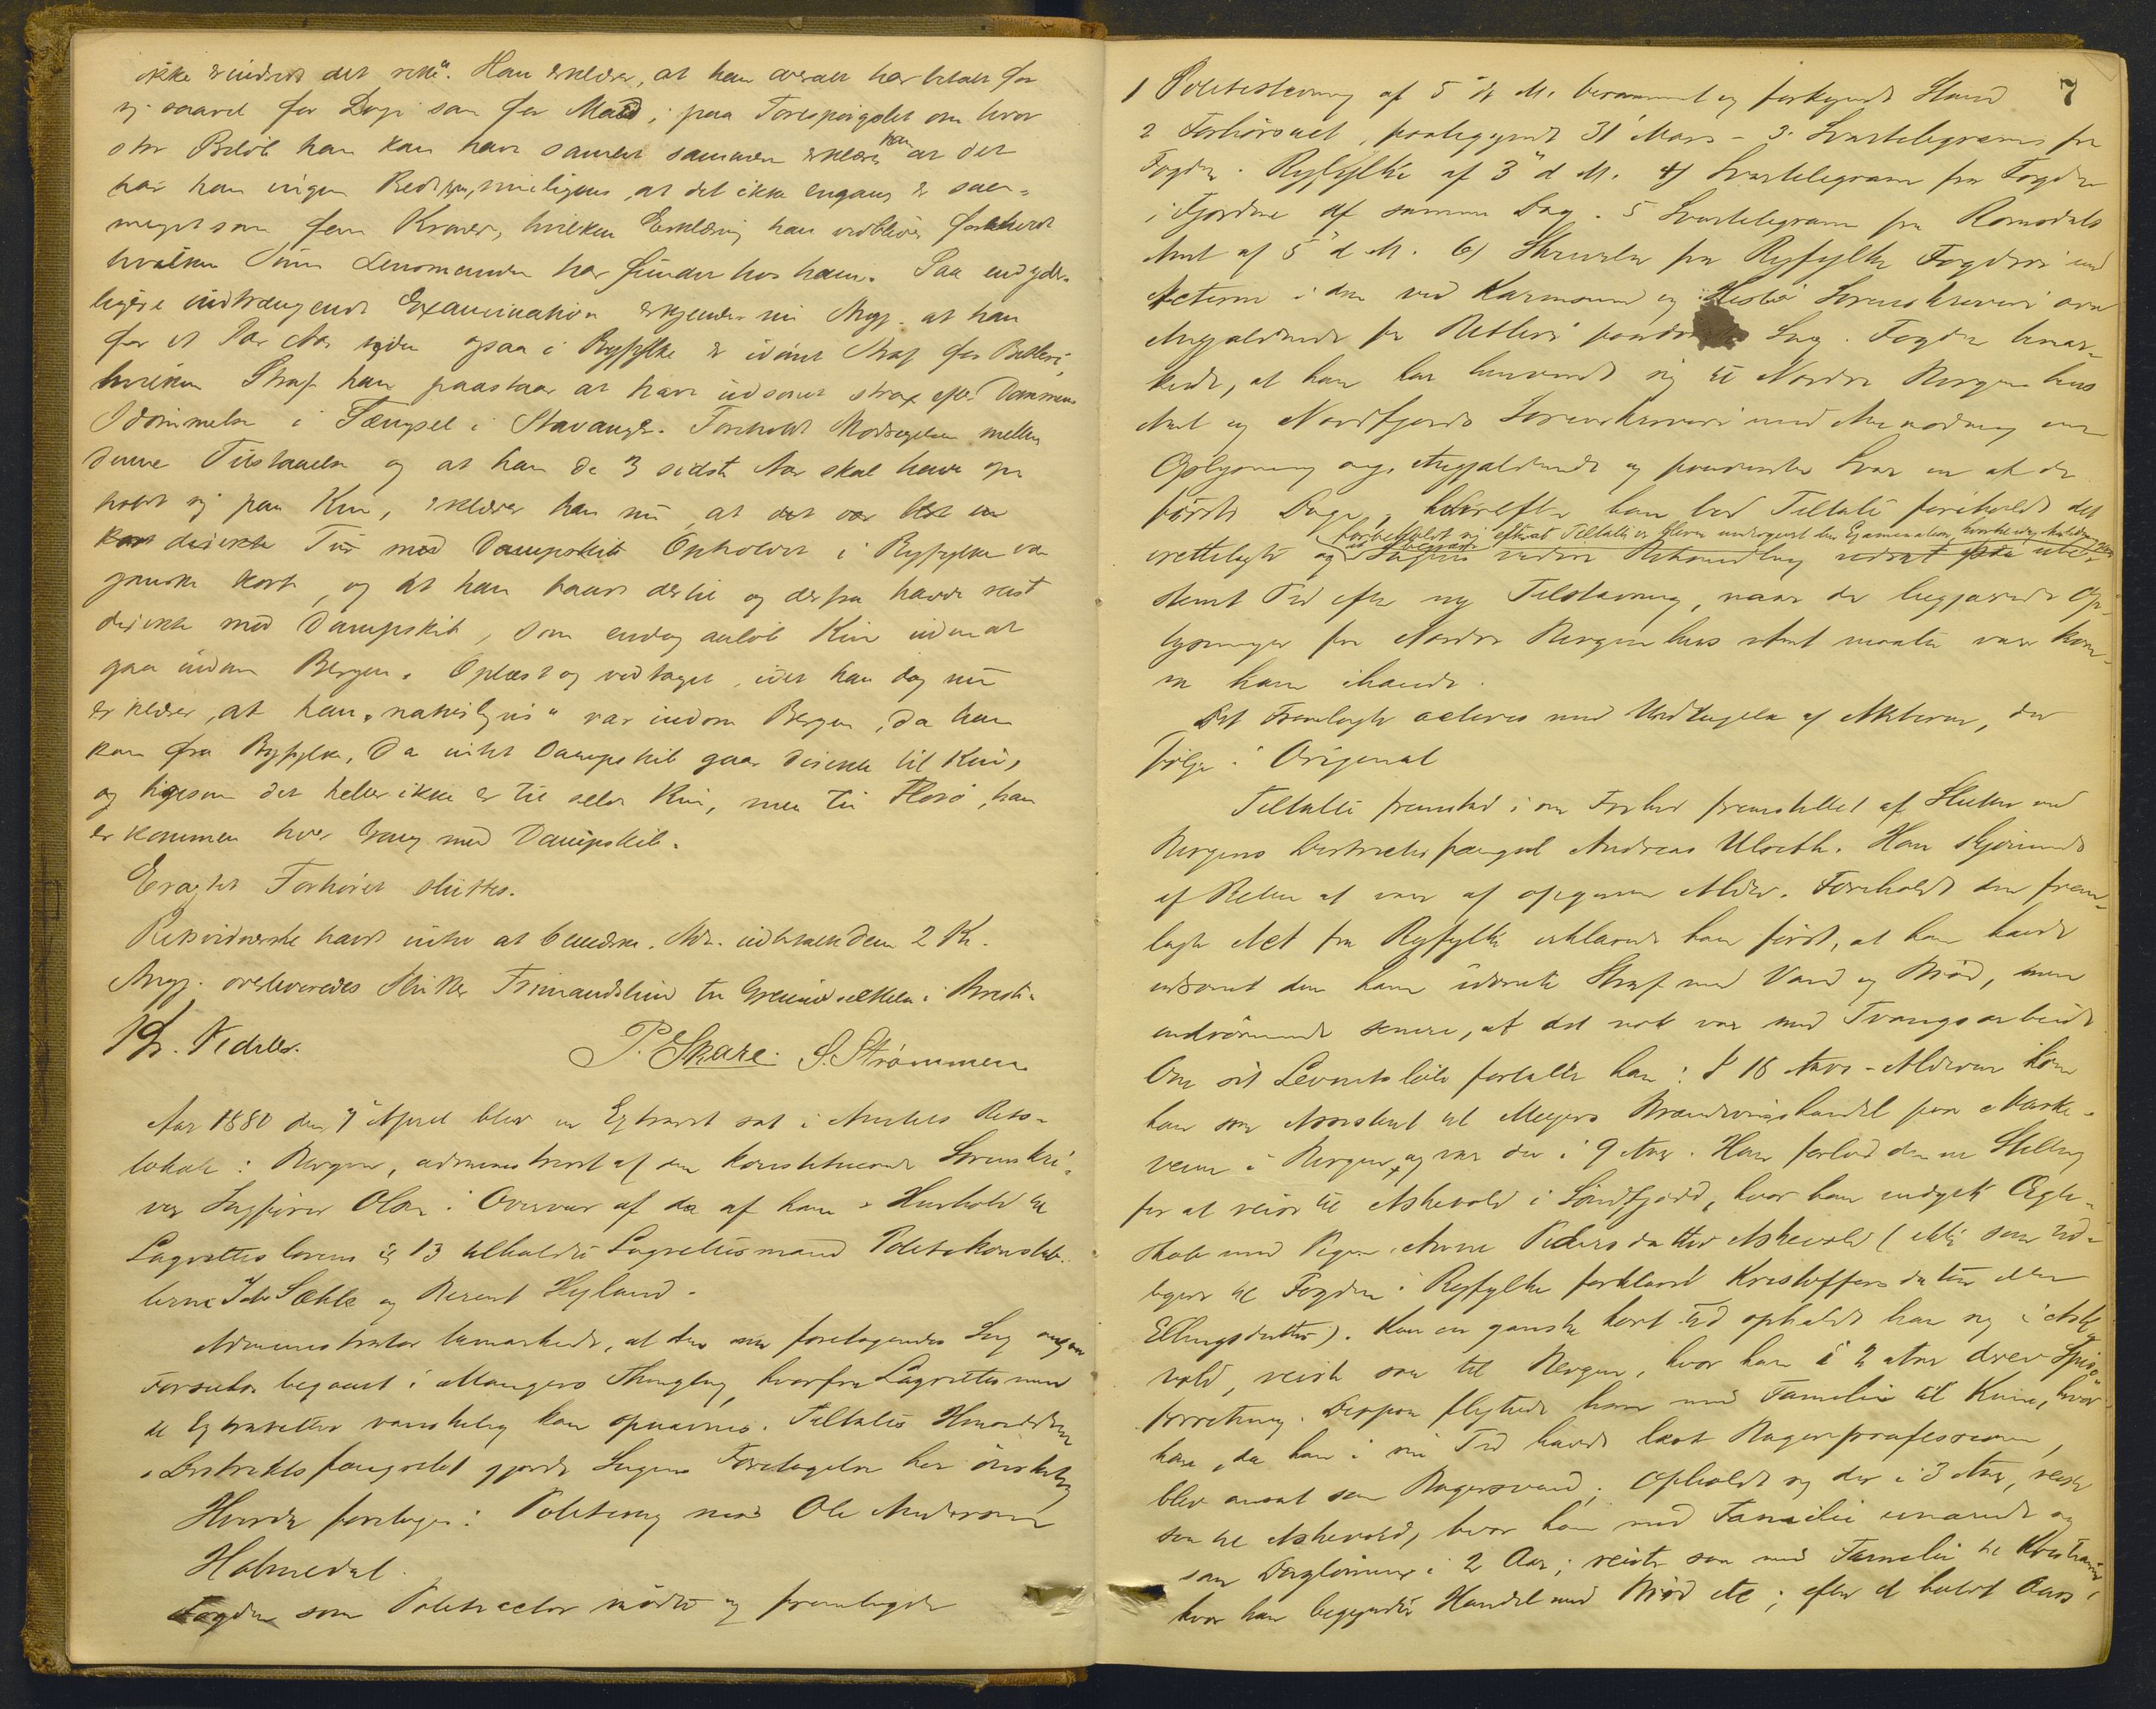 ikke erindret det rette". Han erklærer, at han overalt har betalt for
sig saavel for Logi som for Mad; paa Forespørgslen om hvor
stor Beløb han kan have samlet sammen erklærer han at det
har han ingen Rede paa, rimeligvis, at det ikke engang er saa
meget som fem Kroner, hvilken Erklæring han vedbliver foreholdt
hvilken Sum Lensmanden har funden hos ham. Paa end yder-
ligere indtrængende Examination erkjender nu Angj. at han
for et Par Aar siden ogsaa i Ryfylke er idømt Straf for Betleri,
hvilken Straf han paastaar at have udsonet strax efter Dommens
Idømmelse i Fængsel i Stavanger. Foreholdt Modsigelsen mellem
denne Tilstaaelse og at han de 3 sidste Aar skal have op-
holdt sig paa Kin, erklærer han nu, at det var blot en
kort direkte Tur med Dampskib Opholdet i Ryfylke var
ganske kort, og at han baade dertil og derfra havde reist
direkte med Dampskib, som endog anløb Kin uden at
gaa indom Bergen. Oplæst og vedtaget, idet han dog nu
erklærer, at han "naturligvis" var indom Bergen, da han
kom fra Ryfylke, da intet Dampskib gaar direkte til Kin,
og ligesom det heller ikke er til selve Kin, men til Florø, han
er kommen hver Gang med Dampskib.
Eragtet Forhøret sluttes.
Retsvidnerne havde intet at bemærke. Adv. udbetalt dem 2 Kr.
Angj. overleveredes Slutter Trinandslund til Gjeninsættelse i Arresten
P. Skare. S. Strømmen
Aar 1880 den 7de April blev en Extraret sat i Amtets Rets-
lokale i Bergen, administreret af den konstituerede Sorenskri-
ver Sagfører Olsen i Overvær af de af ham i Henhold til
Lagrettes lovens § 13 tilkaldte Lagrettesmænd Politikonstab-
lerne Joh. Sætle og Berent Hyland.
Administrator bemærkede, at den nu foretagendes Sag angaar
Forseelser begaaet i Mangers Thinglag, hvorfra Lagrettesmænd
til Extraretten vanskelig kan opnævnes. Tiltaltes Hensidden
i Distriktsfængslet gjorde Sagens Foretagelse her ønskelig
Hvorda foretages: Politisag mod Ole Andersen
Holmedal.
Fogden som Politiactor mødte og fremlagde
7
1 Politistevning af 5 ds M. berammet og forkyndt Stævn
2 Forhørsact, paabegyndt 31 Mars - 3. Svartelegram fra
Fogden i Ryfylke af 3 d M. 4) Svartelegram fra Fogden
i Fjordene af samme Dag. 5 Svartelegram fra Romsdals
Amt af 5 d M. 6) Skrivelse fra Ryfylke Fogderi med
Acterne i den ved Karmsund og Hesbø Sorenskriveri over
Angjældende for Betleri Sag. Fogden bemær-
kede, at han har henvendt sig til Nordre Bergenhus
Amt og Nordfjords Sorenskriveri med Anmodning om
Oplysning ang. Angjældende og forventer Svar en af de
første Dage, hvorefter han lod Tiltalte foreholdt det
forbeholdt sig efterat Tiltalte er bleven undergivet den Examination, hvortil
rettelagte og begjære Sagens videre Behandling udsat paa ube-
stemt Tid efter ny Tilstævning, naar de begjærede Op-
lysninger fra Nordre Bergenhus Amt maatte være kom-
ne ham ihænde.
Det Fremlagte acteres med Undtagelse af Akterne, der
følge i Original
Tiltalte fremstod i sin Frihed fremstillet af Slutter ved
Bergens Distrikts fængsel Andreas Ulseth. Han skjønnedes
af Retten at være af opgiven Alder. Foreholdt den frem-
lagte Act fra Ryfylke erklærede han først, at han havde
udsonet den ham idømte Straf med Vand og Brød, men
indrømmede senere, at det nok var med Tvangsarbeide
Om sit Levnetsløb fortalte han: I 18 Aars-Alderen kom
han som Assistent til Meyers Brændevinshandel paa Marke-
veien i Bergen, og var der i 9 Aar. Han forlod denne Stilling
for at reise til Askevold i Søndfjord, hvor han indgik Ægte-
skab med Pigen Anne Pedersdatter Askevold (ikke som tid-
ligere til Fogden i Ryfylke forklaret Kristoffersdatter eller
Ellingsdatter). Kun en ganske kort Tid opholdt han sig i Aske-
vold, reiste saa til Bergen, hvor han i 2 Aar drev Spise-
forretning. Derpaa flyttede han med Familie til Kinn, hvor
han, da han i sin Tid havde lært Bagerprofessionen,
blev ansat som Bagersvend; opholdt sig der i 3 Aar, reiste
saa til Askevold, hvor han med Familie ernærede sig
som Dagløinner i 2 Aar; reiste saa med Familie til Kristiania,
hvor han begyndte Handel med Brød etc; efter et halvt Aars